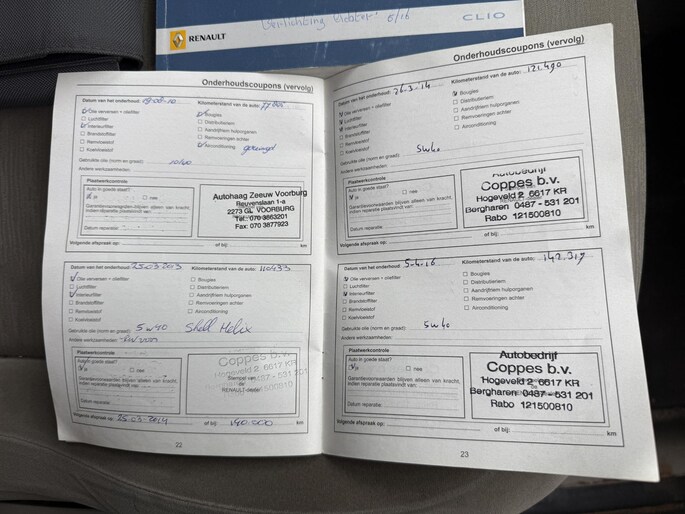 Verlichting 6/16
RENAULT
CLIO
Onderhoudscoupons (vervolg)
Datum van het onderhoud:
Kilometerstand van de auto:
Olie verversen + oliefilter
Luchtfilter
Interieurfilter
Brandstoffilter
Remvloeistof
Koelvloeistof
Bougies
Distributieriem
Aandrijfriem hulporganen
Remvoeringen achter
Airconditioning gereinigd
Gebruikte olie (norm en graad): 10/40
Andere werkzaamheden:
Plaatwerkcontrole
Auto in goede staat?
ja
nee
Garantievoorwaarden blijven alleen van kracht,
indien reparatie plaatsvindt van:
Datum reparatie:
Autohaag Zeeuw Voorburg
Reuvenslaan 1-a
2273 GL VOORBURG
Tel: 070 3863201
Fax: 070 3877923
Volgende afspraak op:
of bij:
km
Datum van het onderhoud: 25.03.2013
Kilometerstand van de auto: 110433
Olie verversen + oliefilter
Luchtfilter
Interieurfilter
Brandstoffilter
Remvloeistof
Koelvloeistof
Bougies
Distributieriem
Aandrijfriem hulporganen
Remvoeringen achter
Airconditioning
Gebruikte olie (norm en graad): 5w40 Shell Helix
Andere werkzaamheden:
Plaatwerkcontrole
Auto in goede staat?
ja
nee
Garantievoorwaarden blijven alleen van kracht,
indien reparatie plaatsvindt van:
Datum reparatie:
Coppes b.v.
Stempel van
de
RENAULT-dealer
Volgende afspraak op: 25.03-2014
of bij: 140.000 km
22
Onderhoudscoupons (vervolg)
Datum van het onderhoud: 26-3-14
Kilometerstand van de auto: 121.490
Olie verversen + oliefilter
Luchtfilter
Interieurfilter
Brandstoffilter
Remvloeistof
Koelvloeistof
Bougies
Distributieriem
Aandrijfriem hulporganen
Remvoeringen achter
Airconditioning
Gebruikte olie (norm en graad): 5w40
Andere werkzaamheden:
Plaatwerkcontrole
Auto in goede staat?
ja
nee
Garantievoorwaarden blijven alleen van kracht,
indien reparatie plaatsvindt van:
Datum reparatie:
Autobedrijf
Coppes b.v.
Hogeveld 2 6617 KR
Bergharen 0487 - 531 201
Rabo 121500810
Volgende afspraak op:
of bij:
km
Datum van het onderhoud: 5-4-16
Kilometerstand van de auto: 142.319
Olie verversen + oliefilter
Luchtfilter
Interieurfilter
Brandstoffilter
Remvloeistof
Koelvloeistof
Bougies
Distributieriem
Aandrijfriem hulporganen
Remvoeringen achter
Airconditioning
Gebruikte olie (norm en graad): 5w40
Andere werkzaamheden:
Plaatwerkcontrole
Auto in goede staat?
ja
nee
Garantievoorwaarden blijven alleen van kracht,
indien reparatie plaatsvindt van:
Datum reparatie:
Autobedrijf
Coppes b.v.
Hogeveld 2 6617 KR
Bergharen 0487 - 531 201
Rabo 121500810
Volgende afspraak op:
of bij:
km
23